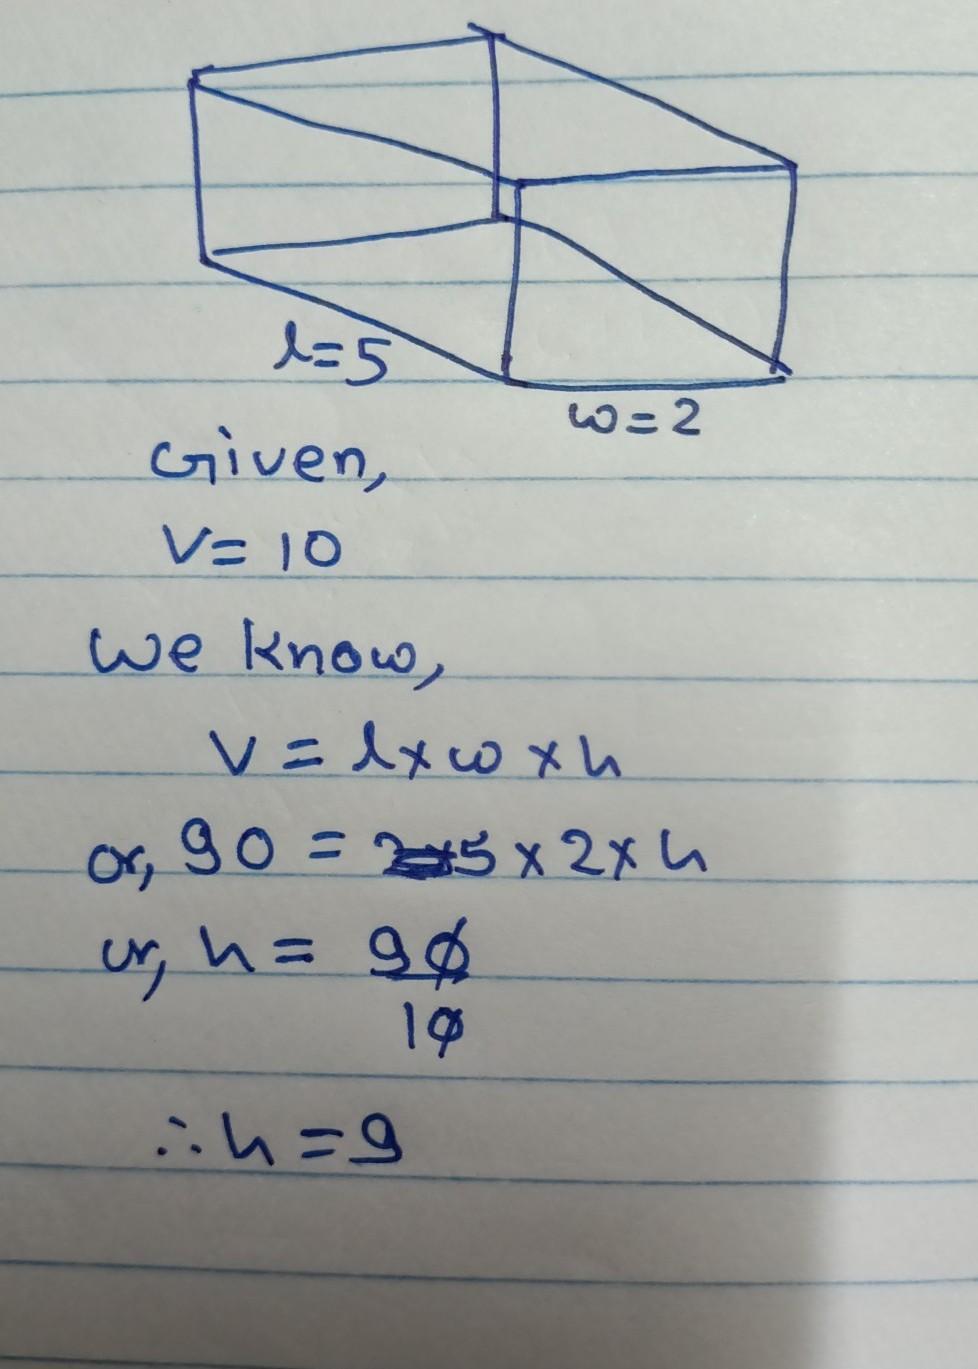 l=5
w=2
Given,
V=10
We know,
V = l×w×h
or, 90 = 5×2×h
or, h = 90
10
∴h=9